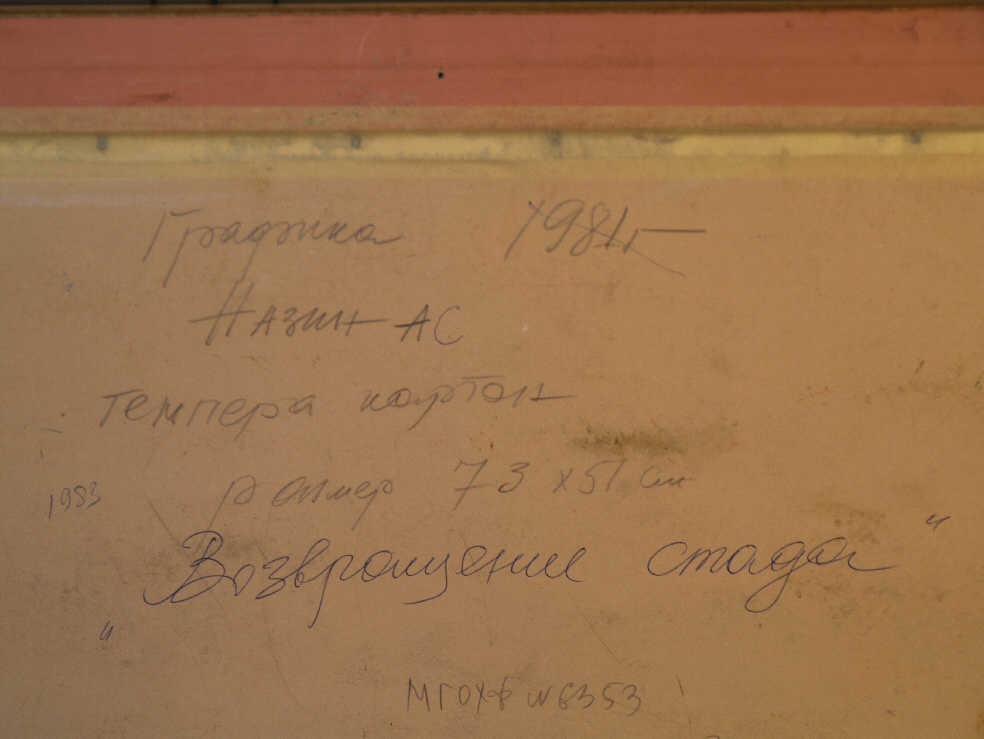 Графика 1981г
Назин АС
темпера картон
размер 73 x 51 см
1983
"Возвращение стада"
МГОХФ №6353